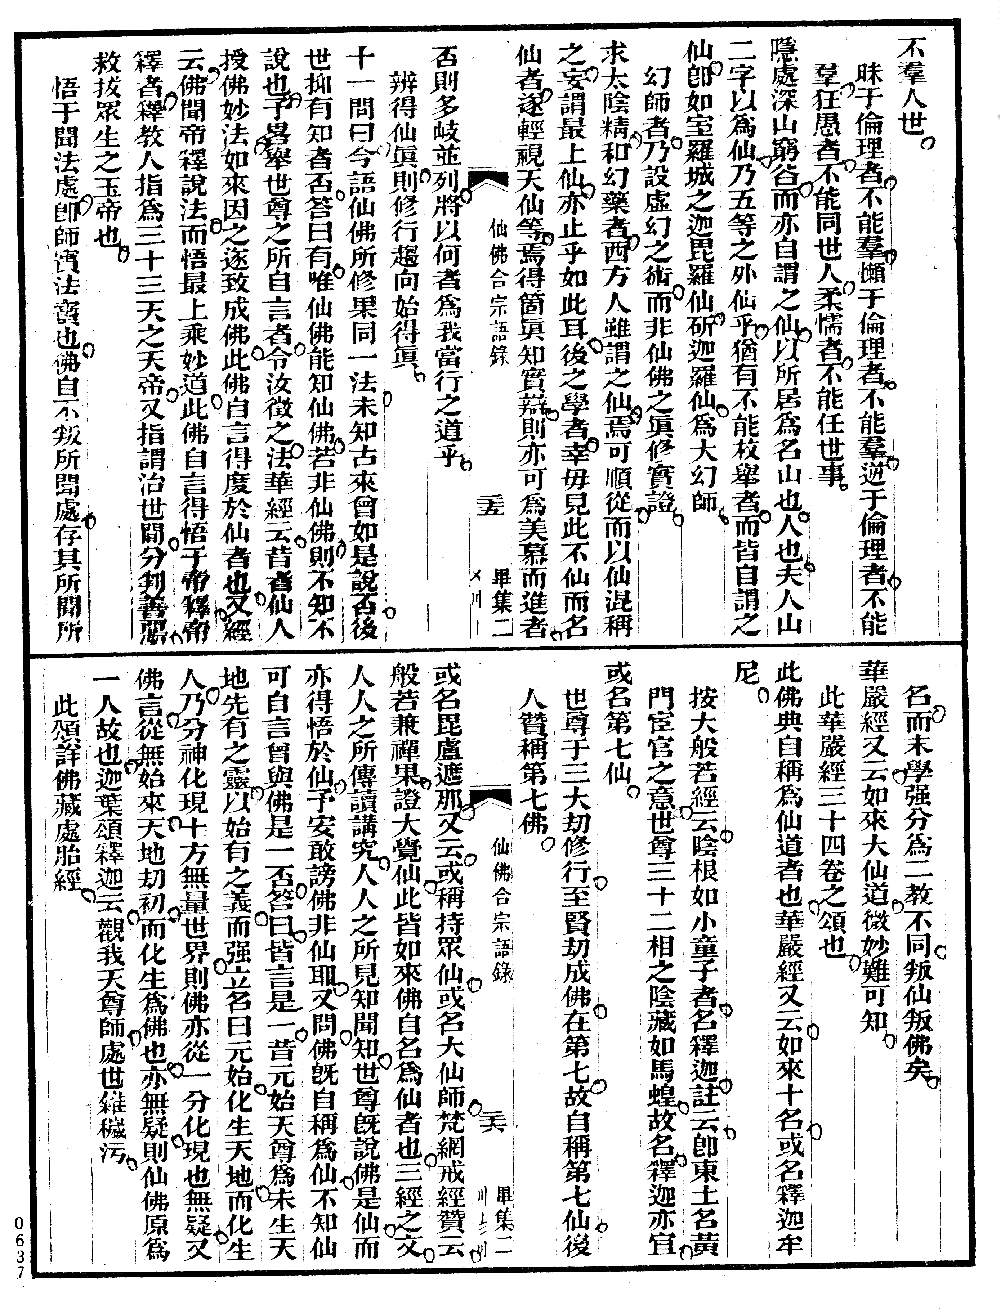 不羣人世
昧于倫理者不能羣懶于倫理者不能羣逆于倫理者不能
羣狂愚者不能同世人柔懦者不能任世事
隱處深山窮谷而亦自謂之仙以所居爲名山也人也夫人山
二字以爲仙乃五等之外仙乎猶有不能枚舉者而皆自謂之
仙卽如室羅城之迦毘羅仙斫迦羅仙爲大幻師
幻師者乃設虛幻之術而非仙佛之眞修實證
求太陰精和幻藥者西方人雖謂之仙焉可順從而以仙混稱
之妄謂最上仙亦止乎如此耳後之學者幸毋見此不仙而名
仙者遂輕視天仙等焉得箇眞知實辯則亦可爲美慕而進者
仙佛合宗語錄
畢集二
否則多岐並列將以何者爲我當行之道乎
辨得仙眞則修行趨向始得眞
十一問曰今語仙佛所修果同一法未知古來曾如是說否後
世抑有知者否答曰有唯仙佛能知仙佛若非仙佛則不知不
說也予畧舉世尊之所自言者令汝徵之法華經云昔者仙人
授佛妙法如來因之遂致成佛此佛自言得度於仙者也又經
云佛聞帝釋說法而悟最上乘妙道此佛自言得悟于帝釋帝
釋者釋教人指爲三十三天之天帝又指謂治世間分判善惡
救拔眾生之玉帝也
悟于聞法處卽師寶法寶也佛自不叛所聞處存其所聞所
名而末學强分爲二教不同叛仙叛佛矣
華嚴經又云如來大仙道微妙難可知
此華嚴經三十四卷之頌也
此佛典自稱爲仙道者也華嚴經又云如來十名或名釋迦牟
尼
按大般若經云陰根如小童子者名釋迦註云卽東土名黃
門宦官之意世尊三十二相之陰藏如馬蝗故名釋迦亦宜
或名第七仙
世尊于三大刧修行至賢刧成佛在第七故自稱第七仙後
人贊稱第七佛
仙佛合宗語錄
畢集二
或名毘盧遮那又云或稱持眾仙或名大仙師梵網戒經贊云
般若兼禪果證大覺仙此皆如來佛自名爲仙者也三經之文
人人之所傳讀講究人人之所見知聞知世尊旣說佛是仙而
亦得悟於仙予安敢謗佛非仙耶又問佛旣自稱爲仙不知仙
可自言曾與佛是一否答曰皆言是一昔元始天尊爲未生天
地先有之靈以始有之義而强立名曰元始化生天地而化生
人乃分神化現十方無量世界則佛亦從一分化現也無疑又
佛言從無始來天地刧初而化生爲佛也亦無疑則仙佛原爲
一人故也迦葉頌釋迦云觀我天尊師處世離穢污
此頌詳佛藏處胎經
0637